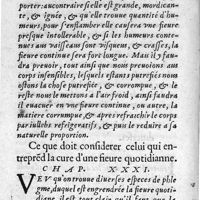 porter: aucontraire si elle est grande, mordicante,
& ignée, & qu'elle trouue quantité d'humeurs
pour s'enflamber elle causera vne fieure
presque intollerable, & si les humeurs contenues
aux vaisseaux sont visqueus, & crasses, la
fieure continue sera fort longue. Mais il faudra
preuoir, tout ainsi que nous preuoions aux
corps insensibles, lesquels estants putrefiés nous
iettons la chose putrefiée, & corrompue, & le
reste nous le metons à l'air froid, ainsi faudra
il euacuer en vne fieure continue, ou autre, la
matiere corrumpue, & apres refraichir le corps
par iullebs refrigeratifs, & puis le reduire a sa
naturelle proportion.
Ce que doit considerer celui qui en-
trepr&#7869;d la cure d'une fieure quotidianne.
CHAP. XXXI.
VEV qu'on trouue diuerses especes de phleg
me, duquel est engendrée la fieure quoti-